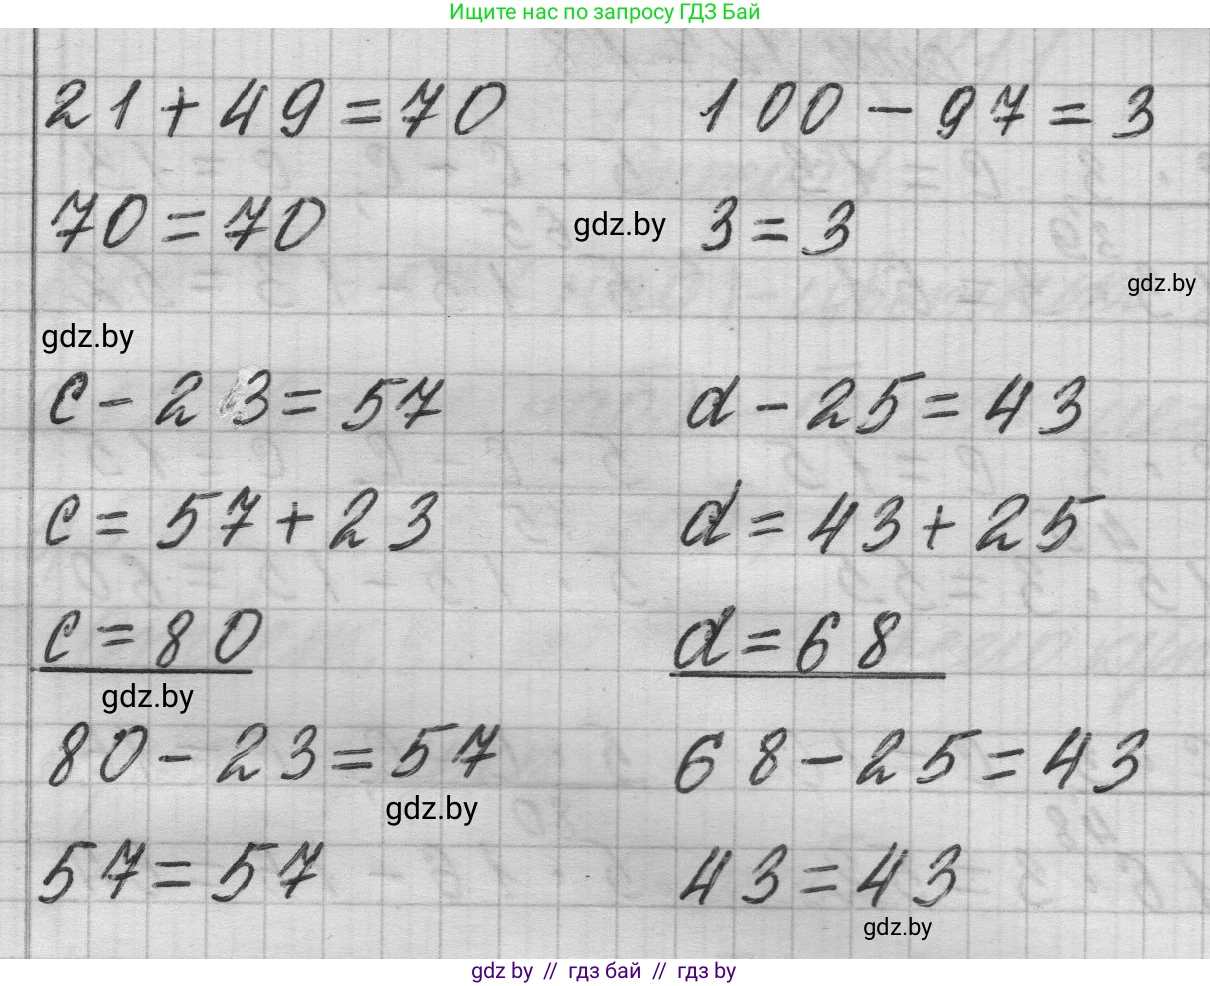 Ищите нас по запросу ГДЗ Бай
21 + 49 = 70
100 - 97 = 3
70 = 70
gdz.by
3 = 3
gdz.by
gdz.by
c - 23 = 57
d - 25 = 43
c = 57 + 23
d = 43 + 25
c = 80
d = 68
gdz.by
80 - 23 = 57
68 - 25 = 43
gdz.by
57 = 57
43 = 43
gdz.by
gdz by // гдз бай // гдз by